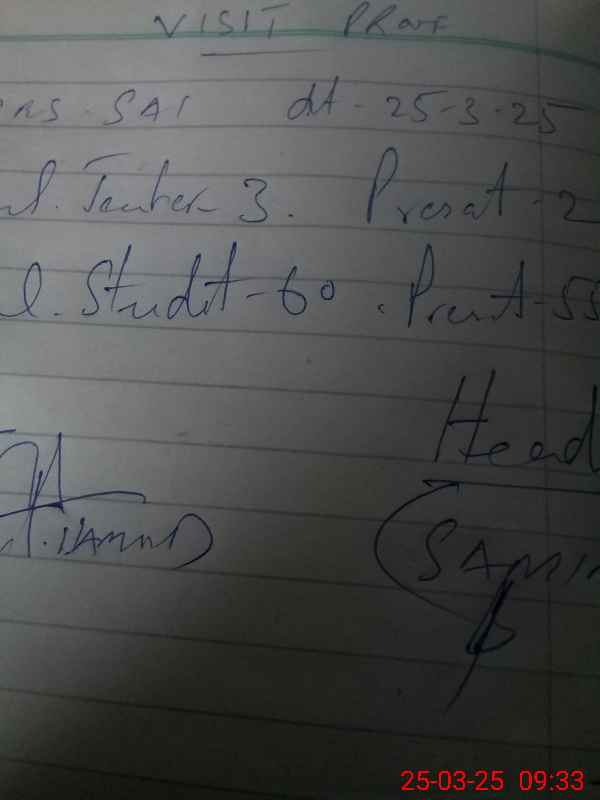 VISIT PRoof
RS. SAI dt - 25-3-25
l. Teacher 3. Present - 2
l. Student - 60. Present - 55
Head
SAMI
25-03-25 09:33